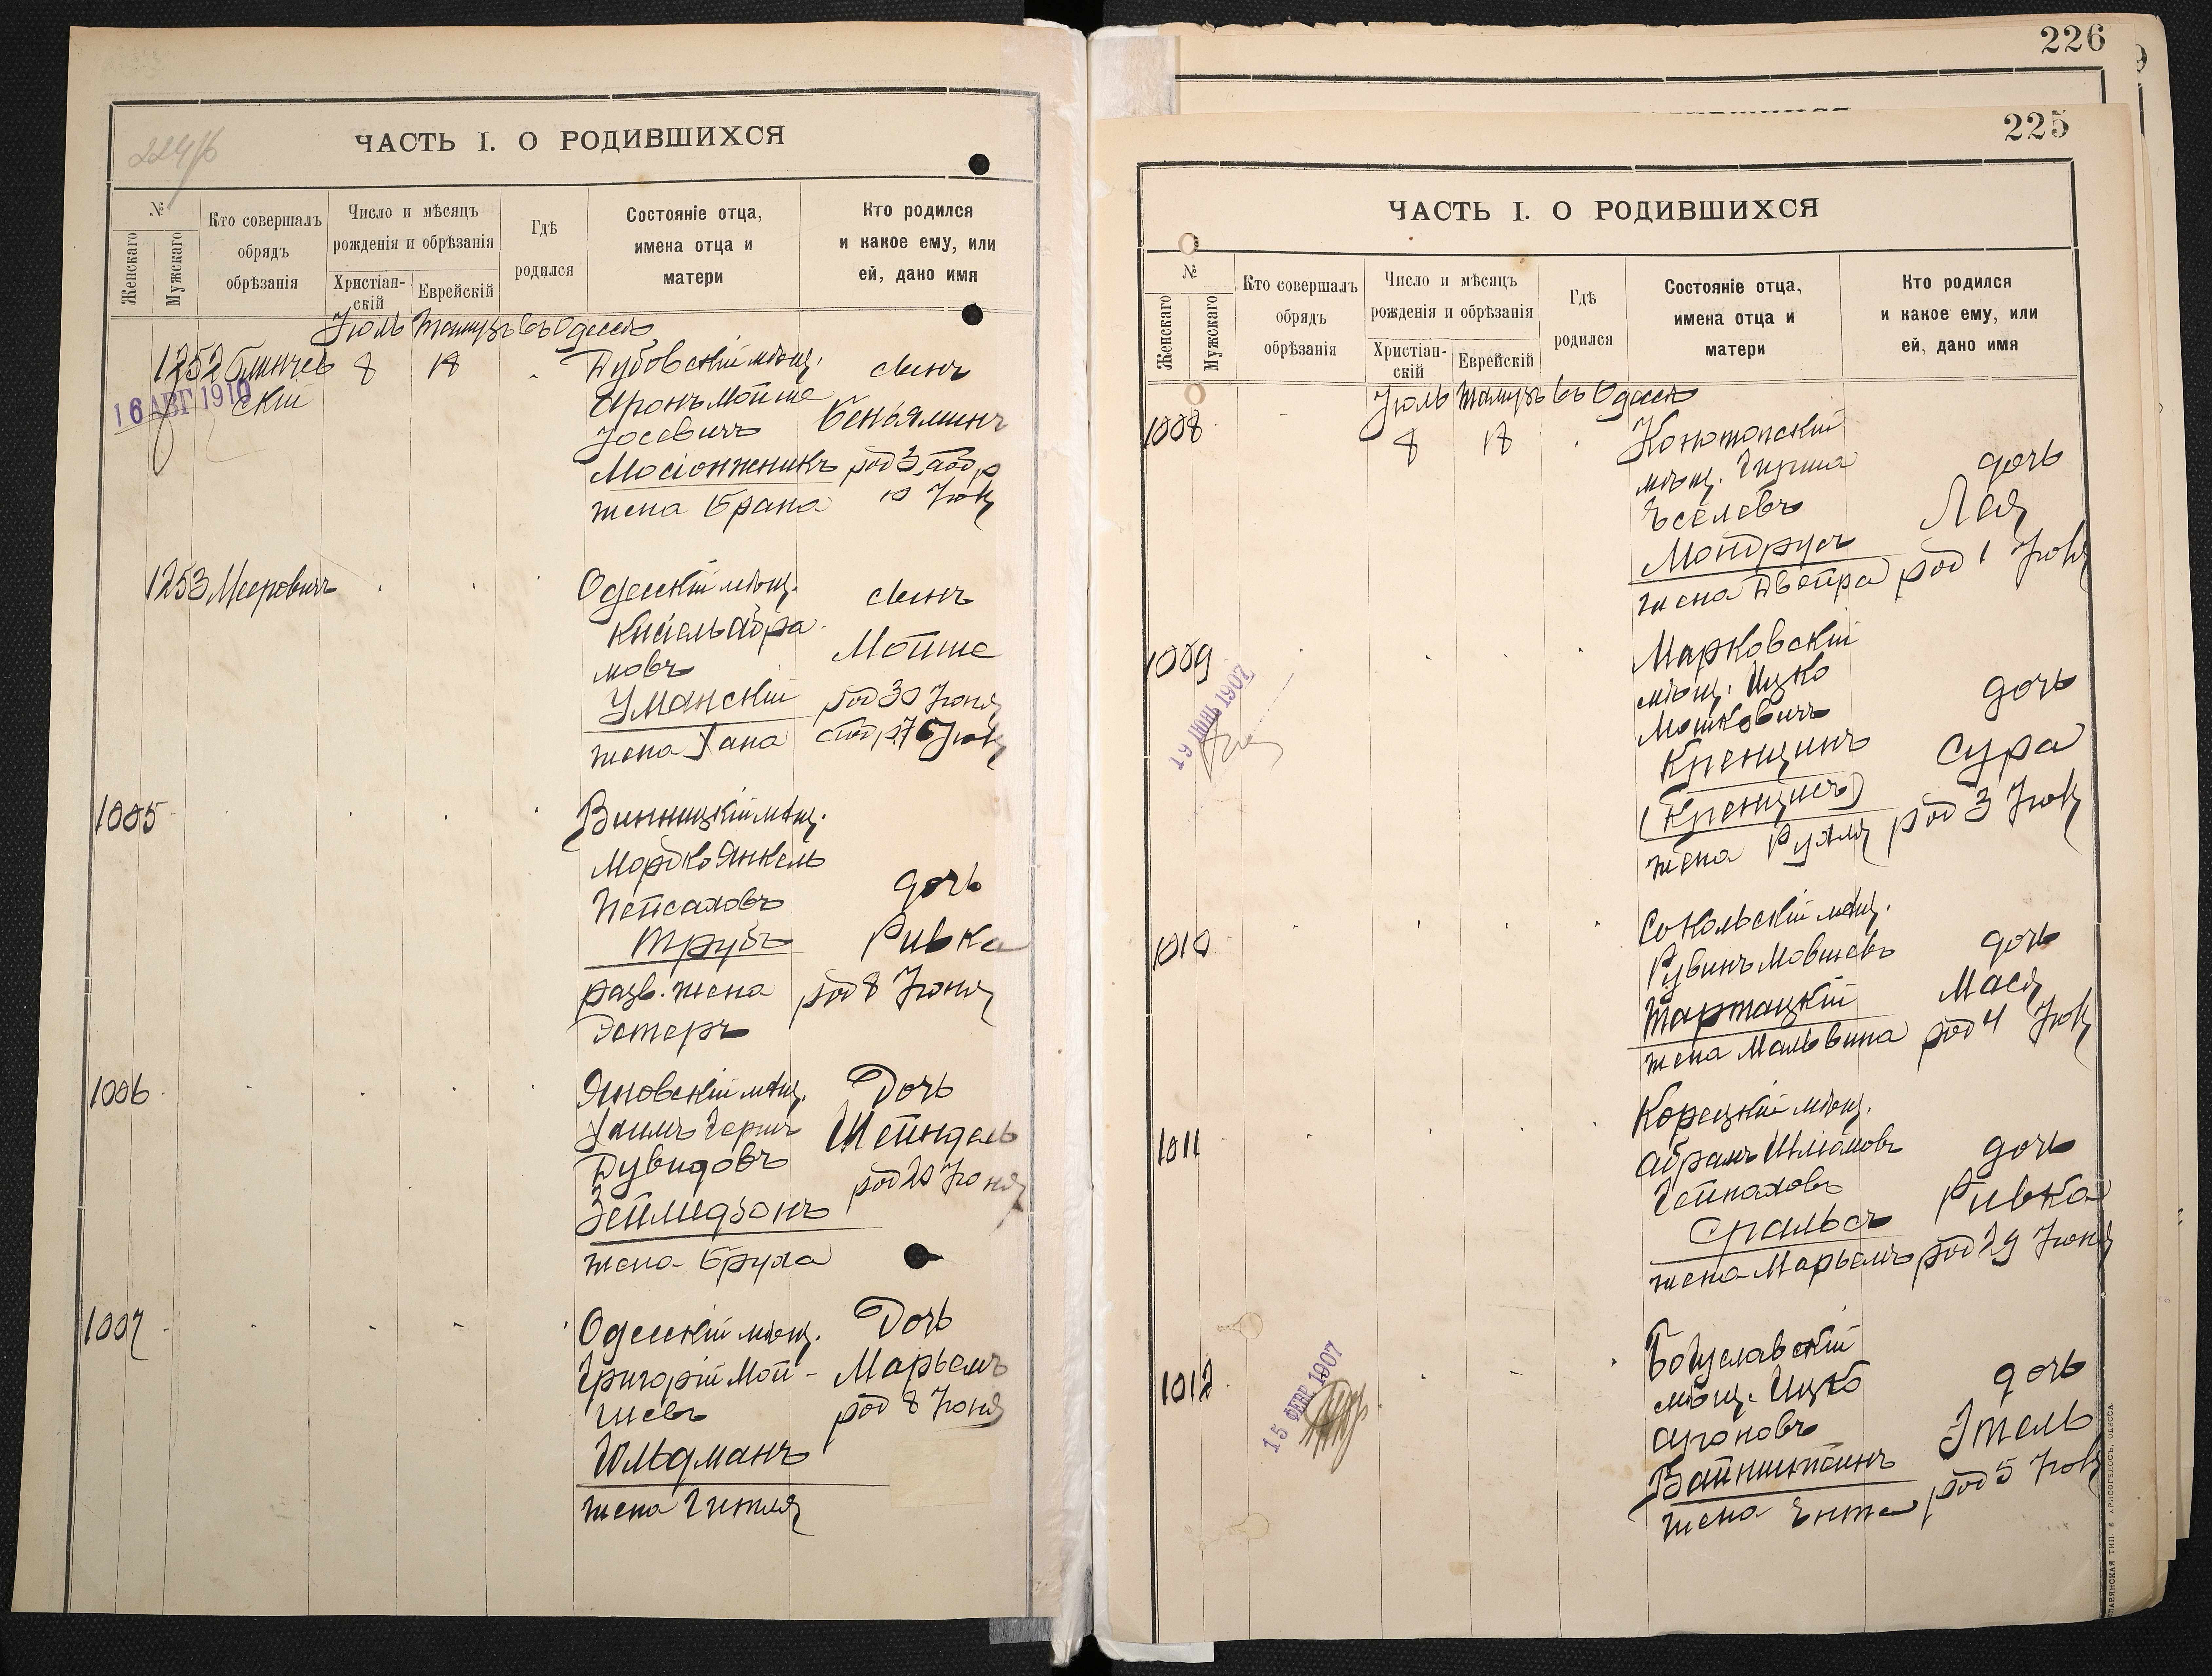 224/б
ЧАСТЬ I. О РОДИВШИХСЯ
№
Женскаго
Мужскаго
Кто совершалъ
обрядъ
обрѣзанія
Число и мѣсяцъ
рожденія и обрѣзанія
Христіан-
скій
Еврейскій
Гдѣ
родился
Состояніе отца,
имена отца и
матери
Кто родился
и какое ему, или
ей, дано имя
Іюль Тамузъ въ Одессѣ
1252 Блинчев
ский
16 АВГ 1910
8 18
Дубовскій мѣщ.
Аронъ Мойше
Іосевичъ
Мосіонжникъ
жена Брана
сынъ
Беньяминъ
род 3
10 Іюл
1253 Мееровичъ
Одесскій мѣщ.
Кисіель Абра
мовъ
Уманскій
жена Хана
сынъ
Мойше
род 30 Іюня
1005
Винницкій мѣщ.
Мордко Янкель
Пейсаховъ
Трубъ
разв. жена
Эстеръ
дочь
Ривка
род 8 Іюня
1006
Яновскій мѣщ.
Хаимъ Герш
Дувидовъ
Зейлидзонъ
жена Бруха
Дочь
Шейндель
род 20 Іюня
1007
Одесскій мѣщ.
Григорій Мой-
шевъ
Гольдманъ
жена Гитля
Дочь
Марьемъ
род 8 Іюня
226
225
ЧАСТЬ I. О РОДИВШИХСЯ
№
Женскаго
Мужскаго
Кто совершалъ
обрядъ
обрѣзанія
Число и мѣсяцъ
рожденія и обрѣзанія
Христіан-
скій
Еврейскій
Гдѣ
родился
Состояніе отца,
имена отца и
матери
Кто родился
и какое ему, или
ей, дано имя
Іюль Тамузъ въ Одессѣ
1008
8 18
Конотопскій
мѣщ. Гирша
Іоселевъ
Мондрусъ
жена Двейра
дочь
Лея
род 1 Іюл
1009
19 1907
Марковскій
мѣщ. Ицко
Мошковичъ
Кренцинъ
(Кренцисъ)
жена Рухля
дочь
Сура
род 3 Іюл
1010
Сокольскій мѣщ.
Рувинъ Мовшевъ
Тартацкій
жена Мальвина
дочь
Мася
род 4 Іюл
1011
Корецкій мѣщ.
Абрамъ Шліомовъ
Гейнаховъ
Спальсъ
жена Марьемъ
дочь
Ривка
род 29 Іюня
1012
15 ФЕВР 1907
Богуславскій
мѣщ. Ицко
Ароновъ
Вайнштейнъ
жена Ента
дочь
Этель
род 5 Іюл
СЛАВЯНСКАЯ ТИП. Е. ХРИСОГЕЛОСЪ, ОДЕССА